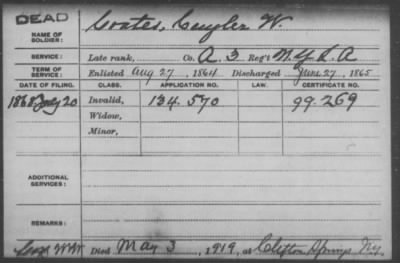 DEAD
NAME OF SOLDIER: Coates, Cuyler W.
SERVICE: Late rank, Co. A. 3 Reg't N.Y.L.A
TERM OF SERVICE: Enlisted Aug 27, 1864 Discharged June 27, 1865
DATE OF FILING. CLASS. APPLICATION NO. LAW. CERTIFICATE NO.
1868 July 20 Invalid, 134.570 99.269
Widow,
Minor,
ADDITIONAL SERVICES:
REMARKS:
Died May 3, 1919, at Clifton Springs Ny.